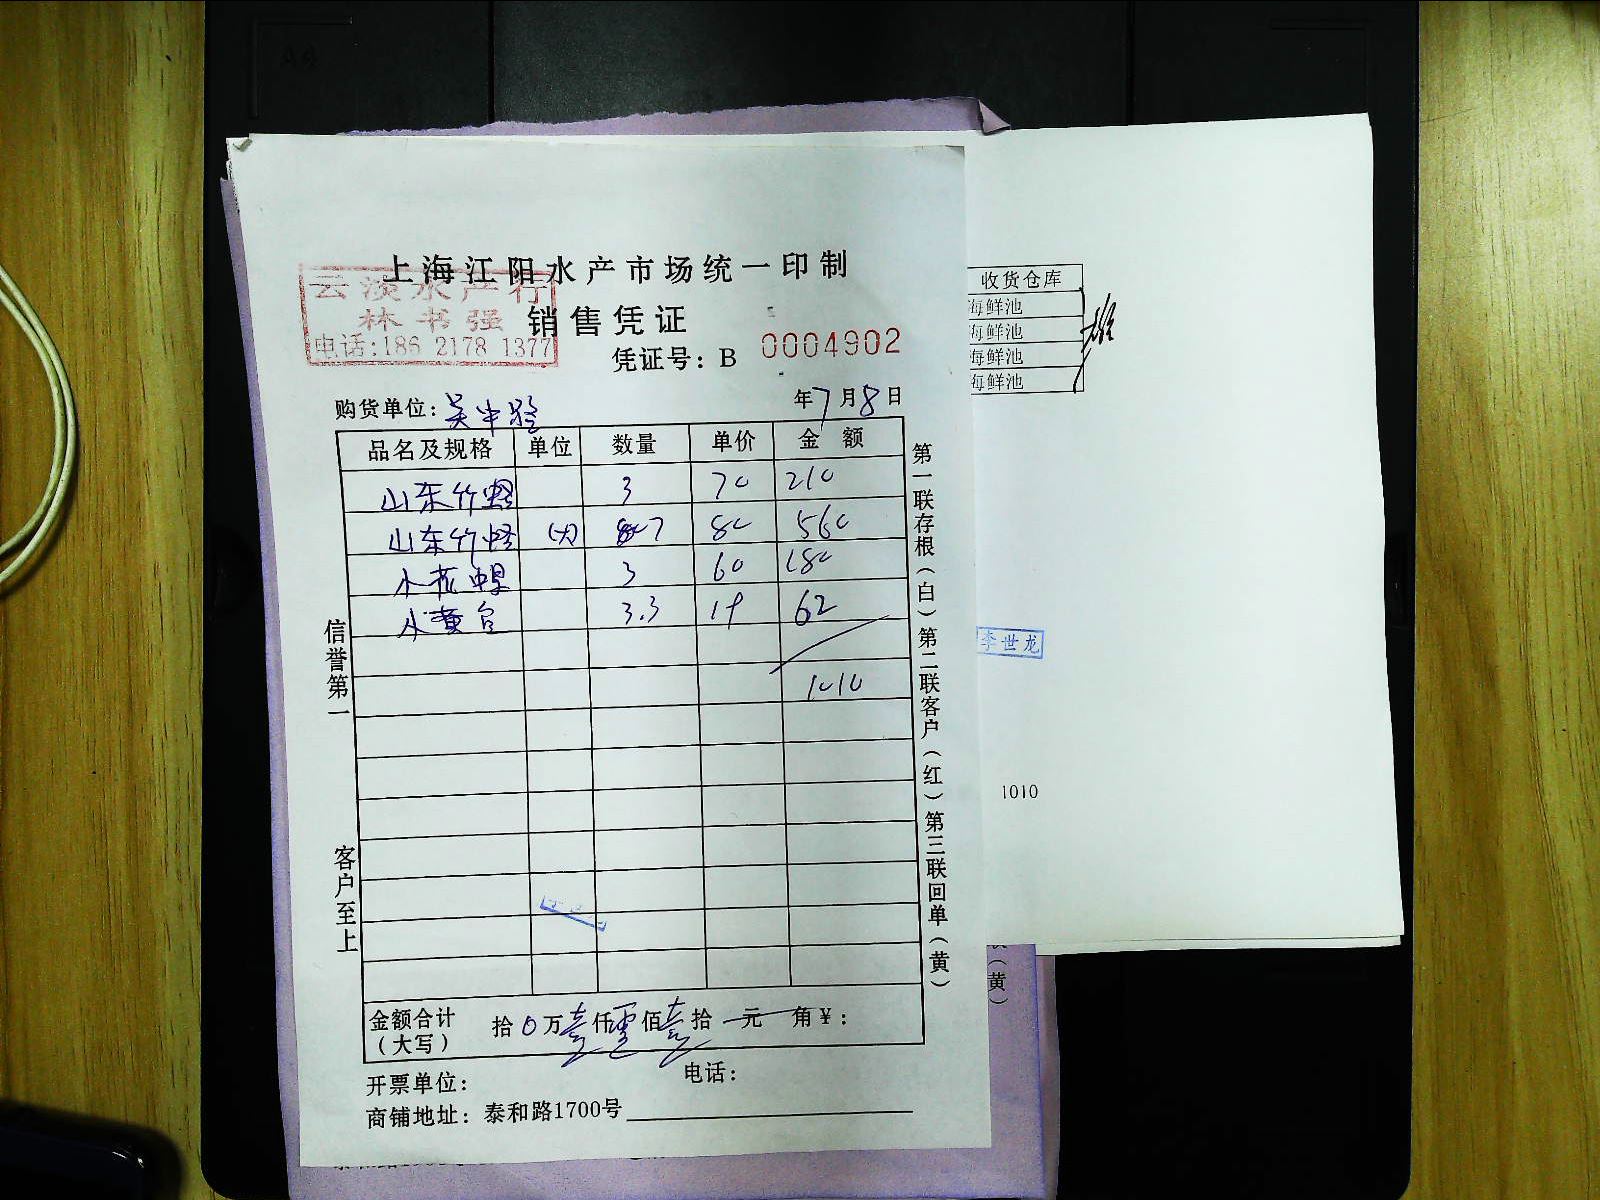 上海江阳水产市场统一印制
云淡水产行
林书强
电话:186 2178 1377
销售凭证
凭证号: B 0004902
购货单位: 年7月8日
品名及规格 单位 数量 单价 金额
山东竹蛏 3 70 210
山东竹蛏 (大) 7 80 560
小花螺 3 60 180
小黄 3.3 19 62
1010
金额合计(大写) 拾0万壹仟零佰壹拾元角¥:
开票单位: 电话:
商铺地址: 泰和路1700号
信誉第一
客户至上
第一联存根(白)第二联客户(红)第三联回单(黄)
收货仓库
海鲜池
海鲜池
海鲜池
海鲜池
李世龙
1010
(黄)